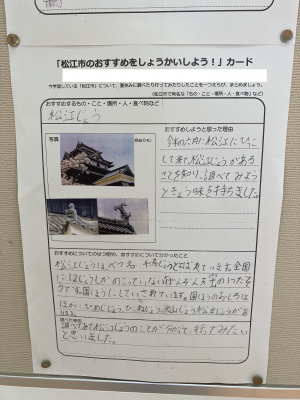 「松江市のおすすめをしょうかいしよう！」カード
今学習している「松江市」について、夏休みに調べたり行ってみたりしたことを一つえらび、まとめましょう。
（松江市で有名な「もの・こと・場所・人・食べ物」など）
おすすめするもの・こと・場所・人・食べ物など
松江じょう
写真
おすすめしようと思った理由
今年の六月に松江にひっこ
して来て、松江じょうがある
ことを知り、調べてみよう
ときょう味を持ちました。
おすすめについてのせつ明や、おすすめについて分かったこと
松江じょうは、べつ名、千鳥じょうとよばれています。全国
に
しかのこっていない
天守の1つだそ
うです。国ほうにしていされています。国ほうのおしろは
ほかに、ひめじじょう、ひこねじょう、犬山じょう、松本じょうがあ
ります。
調べた感想
調べてみて松江じょうのことが分かって、行ってみたい
と思いました。